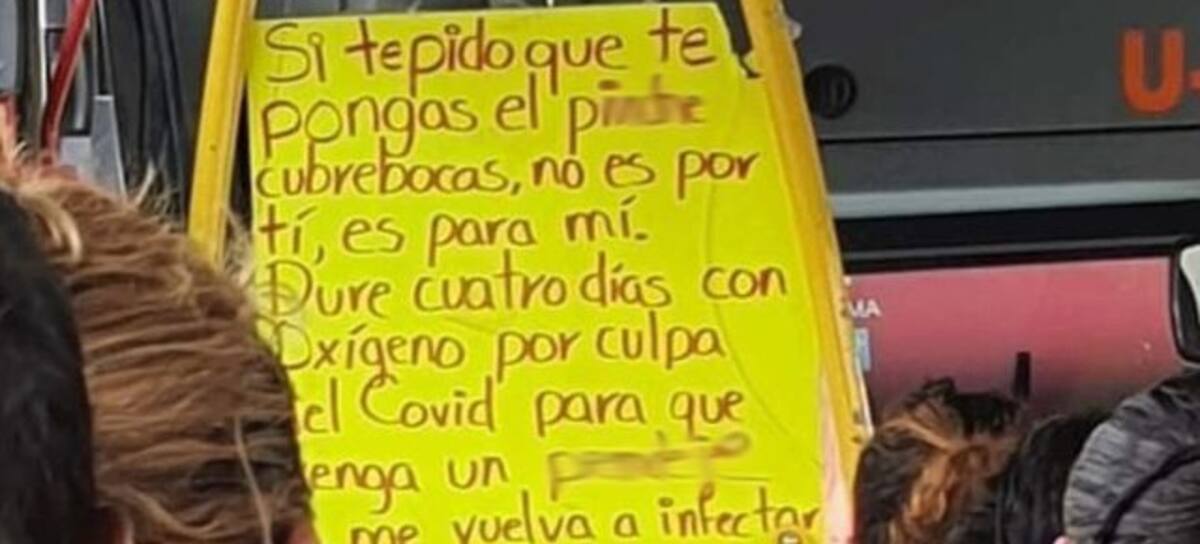 Si te pido que te
pongas el
cubrebocas, no es por
tí, es para mí.
Dure cuatro días con
Oxígeno por culpa
el Covid para que
enga un
me vuelva a infectar
U-
MA